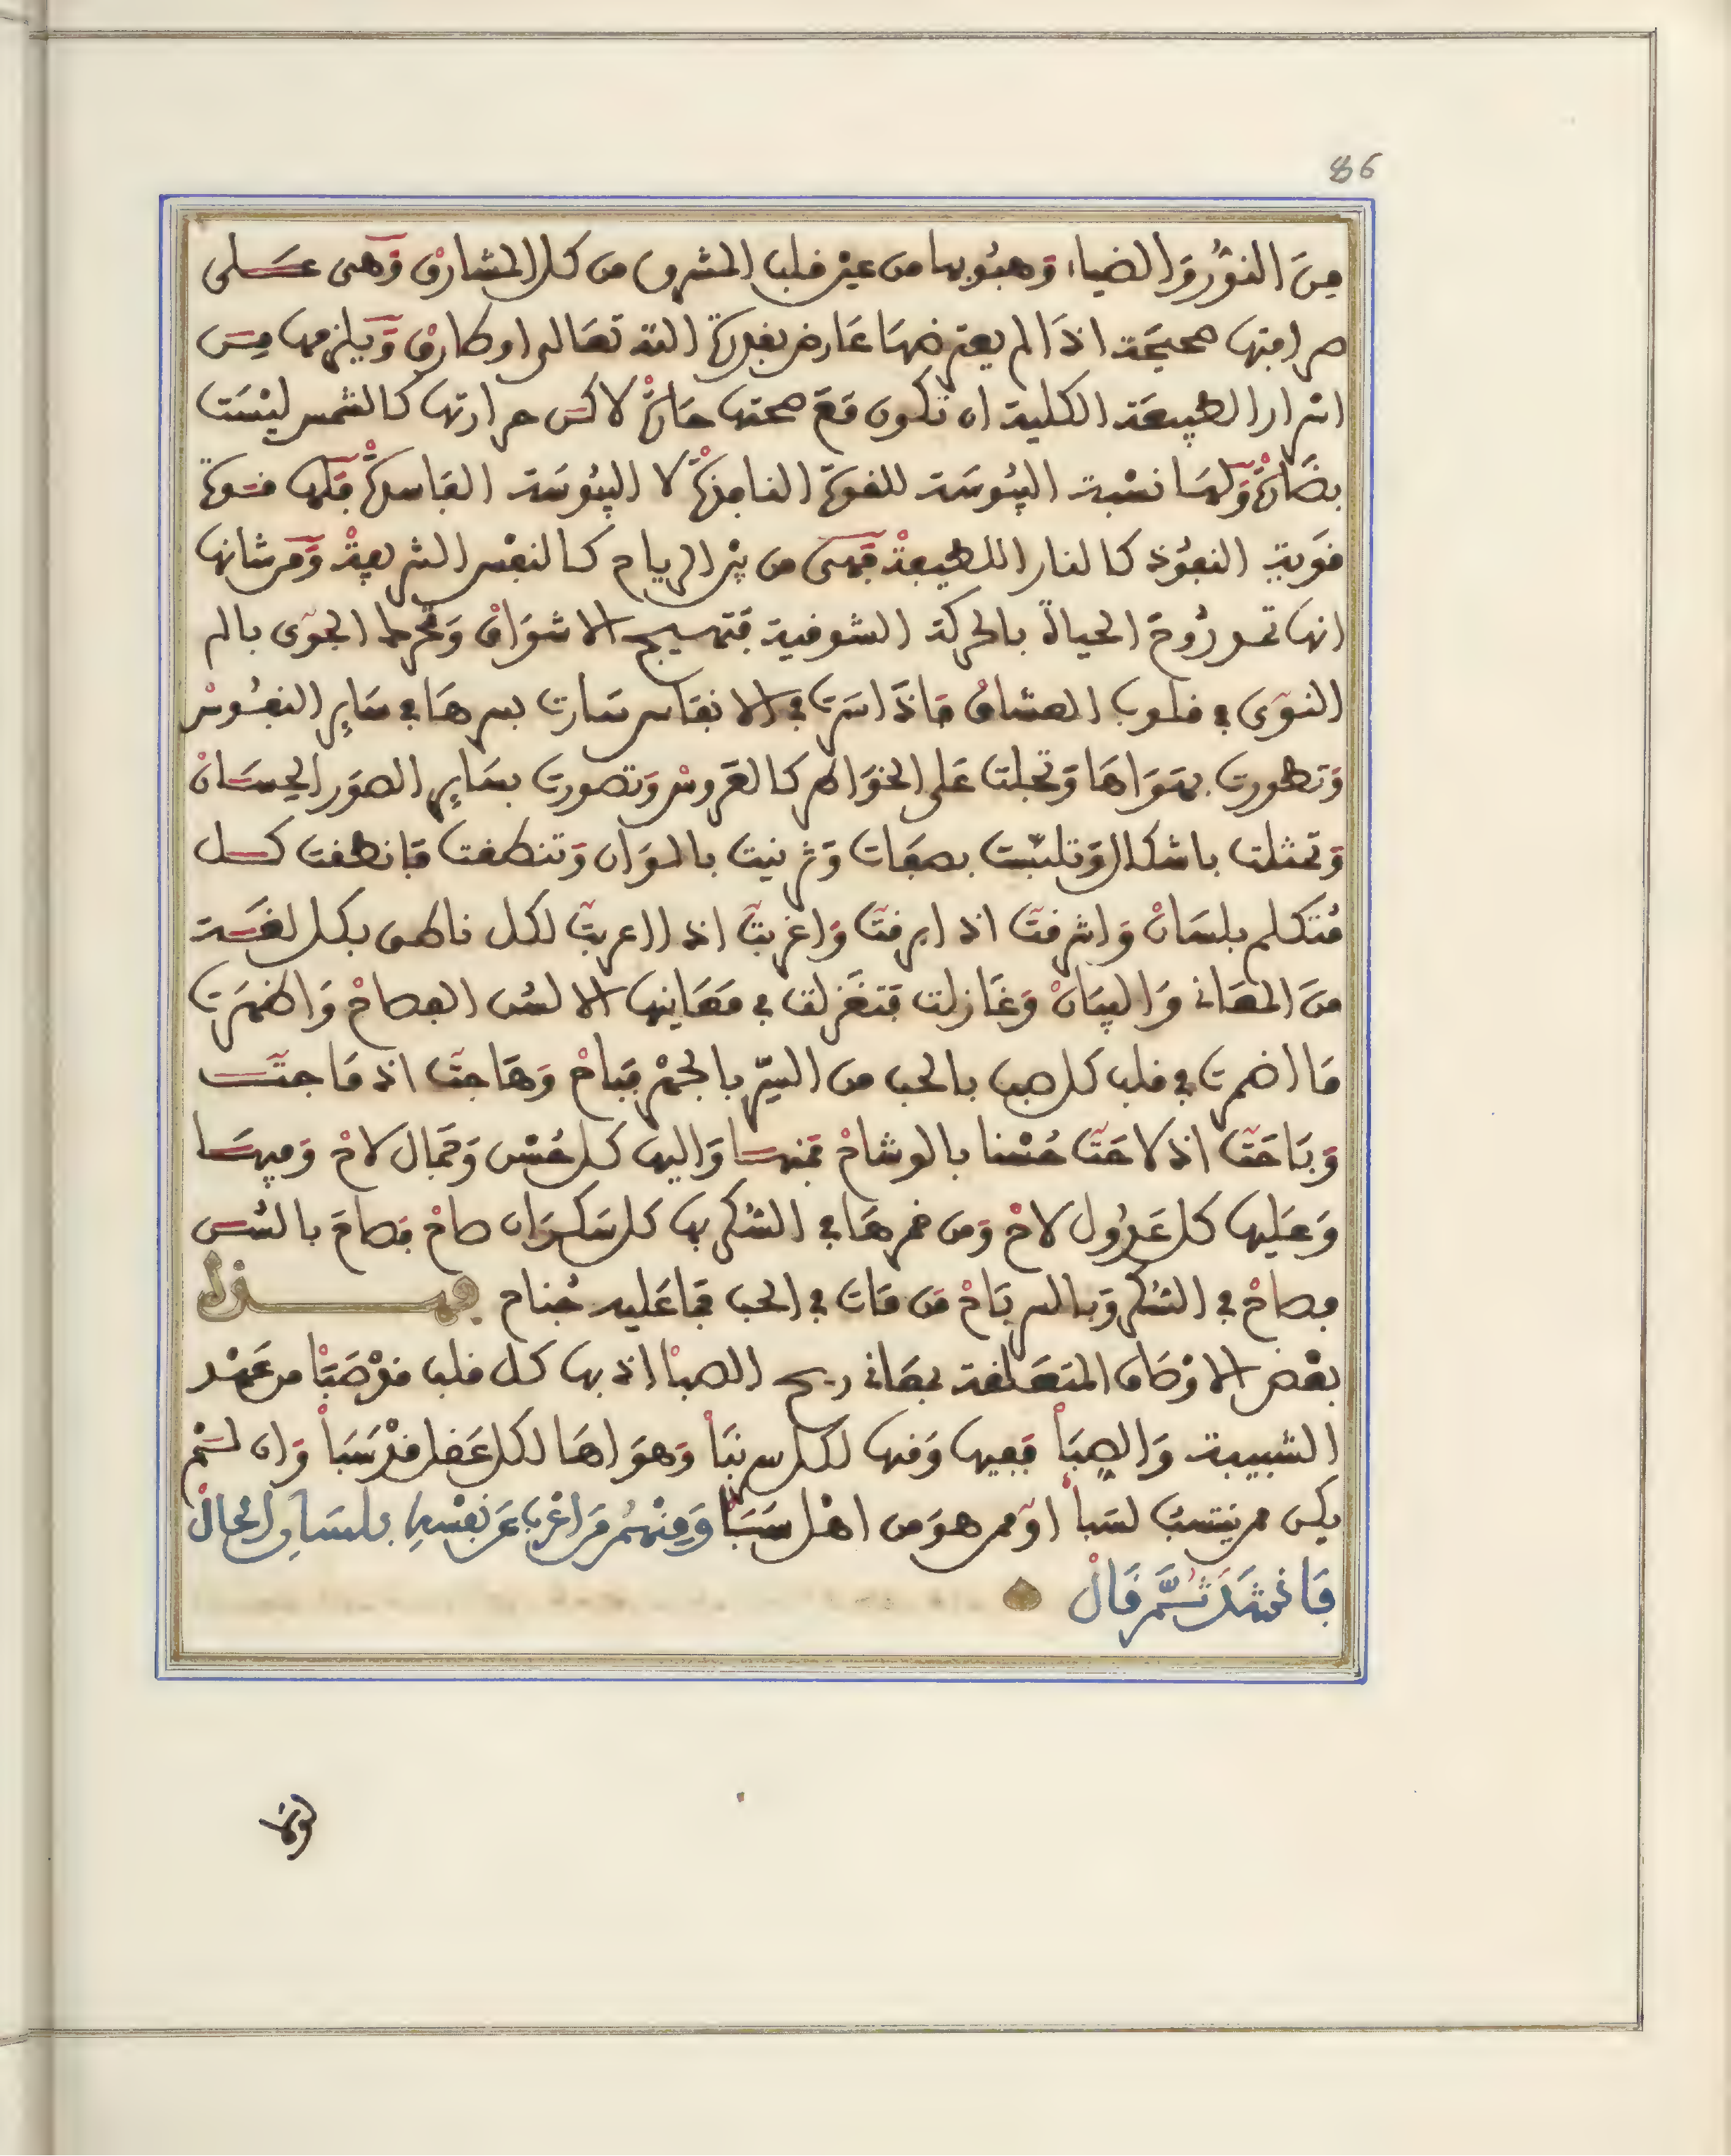 86
مِنَ النُّورِ وَالضياء وَهبُوبها من عين قلب المشرق من كل المشارق وَهى عَلى
صرافتها صحيحَة اذَا لم يعترضهَا عَارض بقدرة الله تعَالى او طارق وَيلزمها مِن
اسرار الطبيعَة الكلية ان تكون مَع صحتها حَارة لاكن حرارتها كالشمس ليْسَت
بضَارة وَلهَا نسْبة اليبُوسَة للقوة النامية لا اليبُوسَة الفاسدة فلها قوة
قوَية النفُوذ كالنار اللطيفة فهى من بين الرياح كالنفْس الشريفة وَمن شانها
انها تمد رُوحَ الحياة بالحركة الشوقية فتهيج الاشوَاق وَتحرك الجوَى بالم
النوَى في قلوب العشاق فاذَا سَرت في الانفاس سَارت بسرهَا في سَايِر النفُوسْ
وَتطورت بهوَاهَا وَتجلت عَلى الخوَاطر كالعَروسْ وَتصورت بسَايِر الصوَر الحِسَانْ
وَتمثلت باشكال وَتلبّست بصفَات وَتزينت بالوَان وَتنطقت فانطقت كل
مُتكلم بلسَانْ وَاشرقتَ اذ ابرقتَ وَاغربتَ اذ ااعربتَ لكل ناطق بكل لغَة
منَ المعَانى وَالبيَانْ وَغَازلت فتغَزلت في مَعَانيها الالسُن الفصاحْ وَاظهَرَت
مَا اضمرت في قلب كل صب بالحب من السِّر بالجهْر فبَاحْ وَهَاجتَ اذ مَاجتَ
وَبَاحَتَ اذ لاحَتَ حُسْنا بالوشاحْ فمنهَا وَاليها كل حُسْن وَجَمَال لاحْ وَفيهَا
وَعَليها كل عَذُول لاحْ وَمن خمرهَا في السُكر بها كل سَكرَان صاحْ فصَاحَ بالسُن
فصاحْ في السُكر وَبالسر بَاحْ مَن مَات في الحب فمَا عَليه جُناح فهـذا
بعْض الاوْصَاف المتعَلقة بمعَانى ريح الصبَا اذ بها كل قلب قدْ صَبَا من عَهْد
الشبيبة وَالصِبَا ففيها وَمنها لكل سر نبَأ وَهوَاهَا لكل عَقل قدْ سَبَا وَان لـمْ
يكن ممن ينتسبُ لسَبأ اوْ ممن هوَ من اهْل سَبَا وَمِنْهُم مَن اعْرَبَ عَن نَفْسِهِ بِلسَانِ الحَالْ
فَانْشَدَ ثُمَّ قَالْ